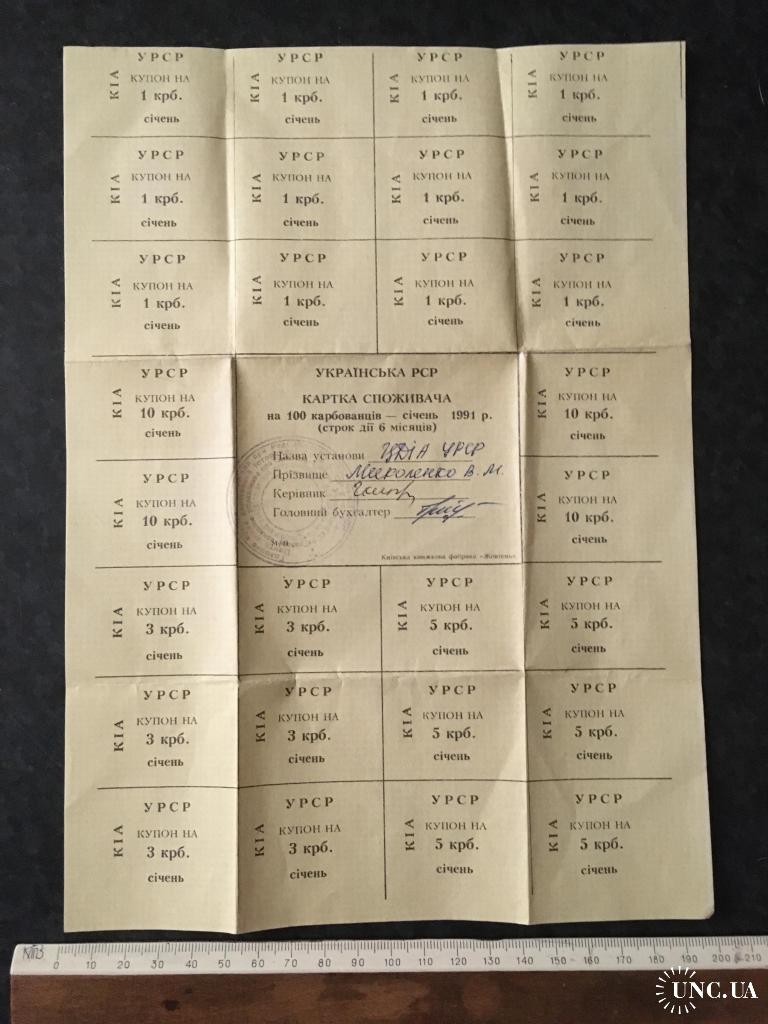 УРСР УРСР УРСР УРСР
КІА КУПОН НА КІА КУПОН НА КІА КУПОН НА КІА КУПОН НА
1 крб. 1 крб. 1 крб. 1 крб.
січень січень січень січень
УРСР УРСР УРСР УРСР
КІА КУПОН НА КІА КУПОН НА КІА КУПОН НА КІА КУПОН НА
1 крб. 1 крб. 1 крб. 1 крб.
січень січень січень січень
УРСР УРСР УРСР УРСР
КІА КУПОН НА КІА КУПОН НА КІА КУПОН НА КІА КУПОН НА
1 крб. 1 крб. 1 крб. 1 крб.
січень січень січень січень
УРСР
КІА КУПОН НА
10 крб.
січень
УРСР
КІА КУПОН НА
10 крб.
січень
УКРАЇНСЬКА РСР
КАРТКА СПОЖИВАЧА
на 100 карбованців — січень 1991 р.
(строк дії 6 місяців)
Назва установи ЦДІА УРСР
Прізвище В. М.
Керівник
Головний бухгалтер
Київська книжкова фабрика «Жовтень»
УРСР
КІА КУПОН НА
10 крб.
січень
УРСР
КІА КУПОН НА
10 крб.
січень
УРСР УРСР УРСР УРСР
КІА КУПОН НА КІА КУПОН НА КІА КУПОН НА КІА КУПОН НА
3 крб. 3 крб. 5 крб. 5 крб.
січень січень січень січень
УРСР УРСР УРСР УРСР
КІА КУПОН НА КІА КУПОН НА КІА КУПОН НА КІА КУПОН НА
3 крб. 3 крб. 5 крб. 5 крб.
січень січень січень січень
УРСР УРСР УРСР УРСР
КІА КУПОН НА КІА КУПОН НА КІА КУПОН НА КІА КУПОН НА
3 крб. 3 крб. 5 крб. 5 крб.
січень січень січень січень
0 10 20 30 40 50 60 70 80 90 100 110 120 130 140 150 160 170 180 190 200 210
UNC.UA